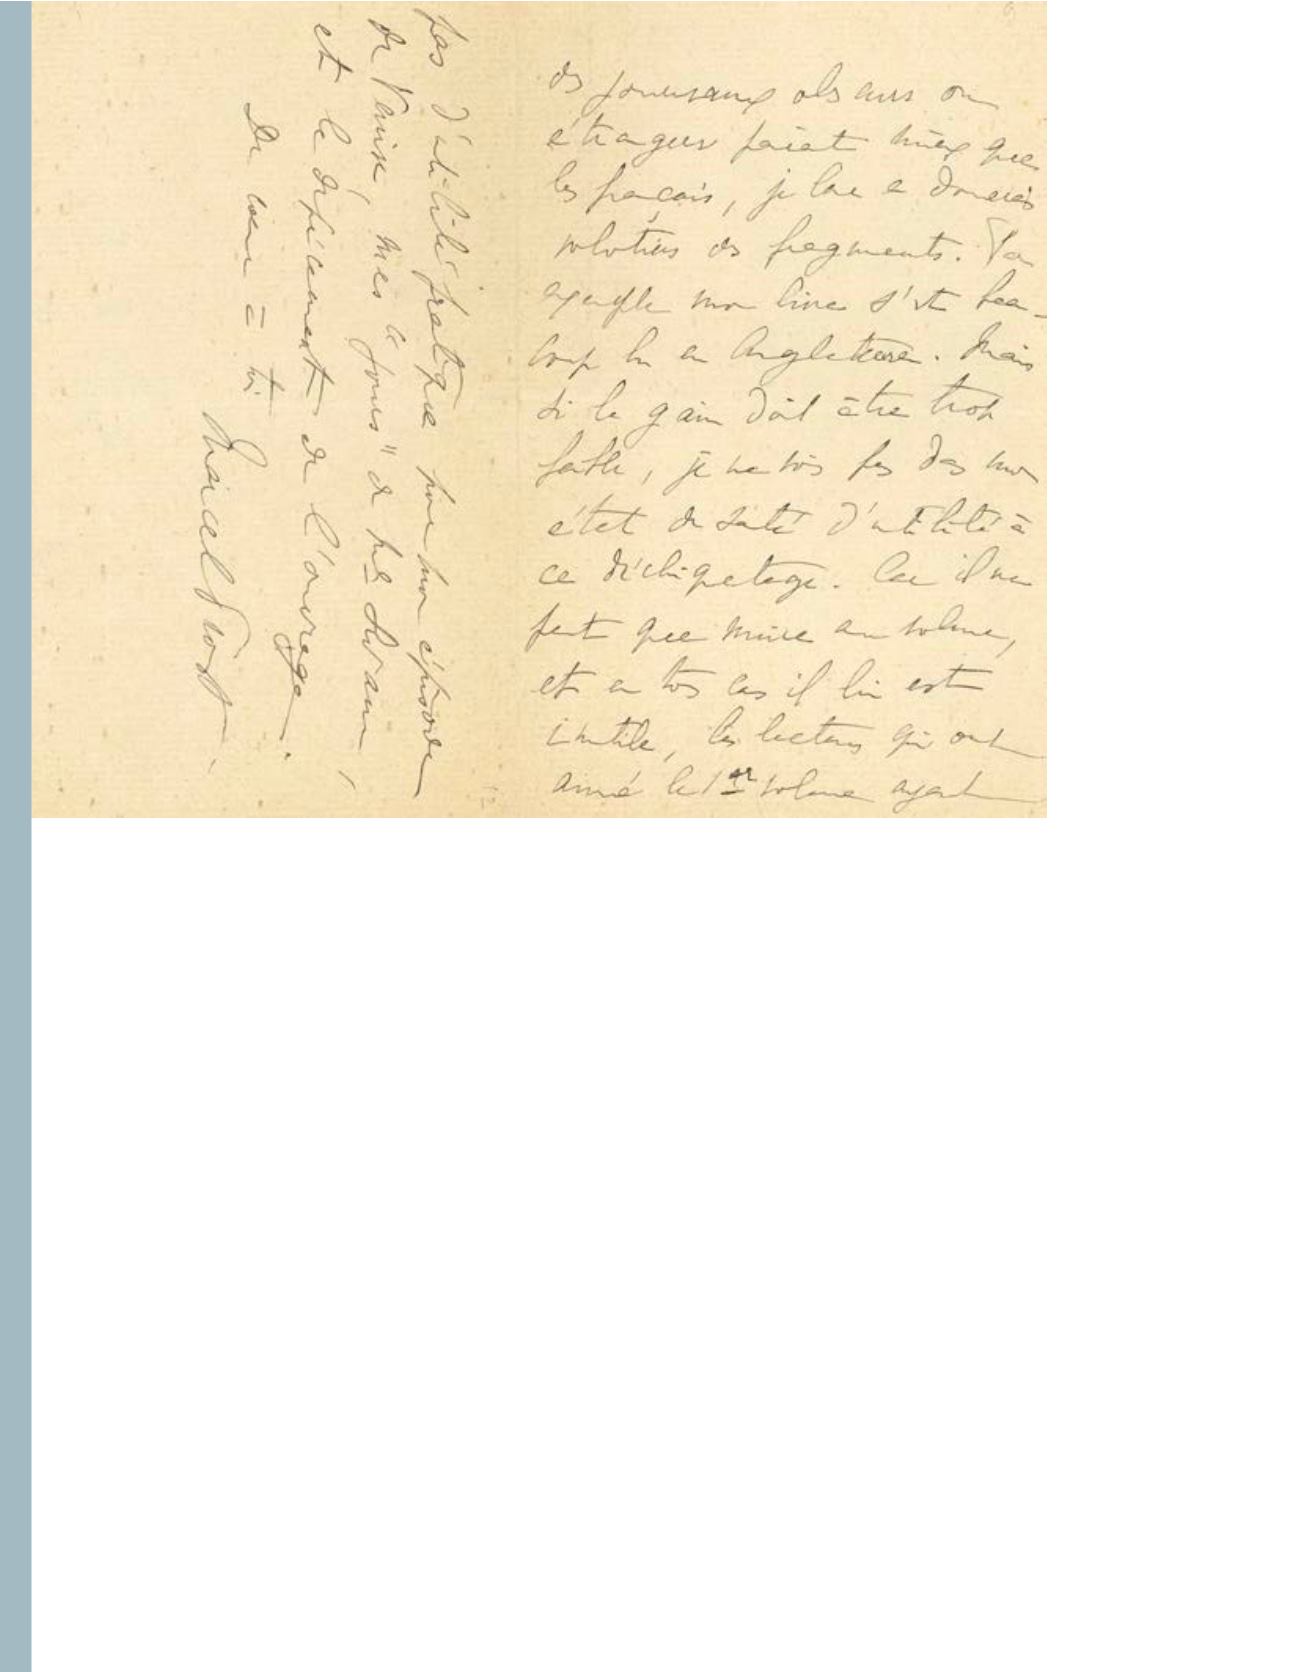 des journaux obscurs ou
étrangers paient mieux que
les français, je leur en donnerais
volontiers des fragments. Par
exemple mon livre s'est beau-
coup lu en Angleterre. Mais
si le gain doit être trop
faible, je ne vois pas dans mon
état de santé d'utilité à
ce déchiquetage. Car il ne
peut que nuire au volume,
et en tous cas il lui est
inutile, les lecteurs qui ont
aimé le 1er volume ayant
pas d'utilité pratique pour mon épisode
de Venise, mes "jours" de Me Swann,
et le dépècement de l'ouvrage.
De cœur à toi
Marcel Proust